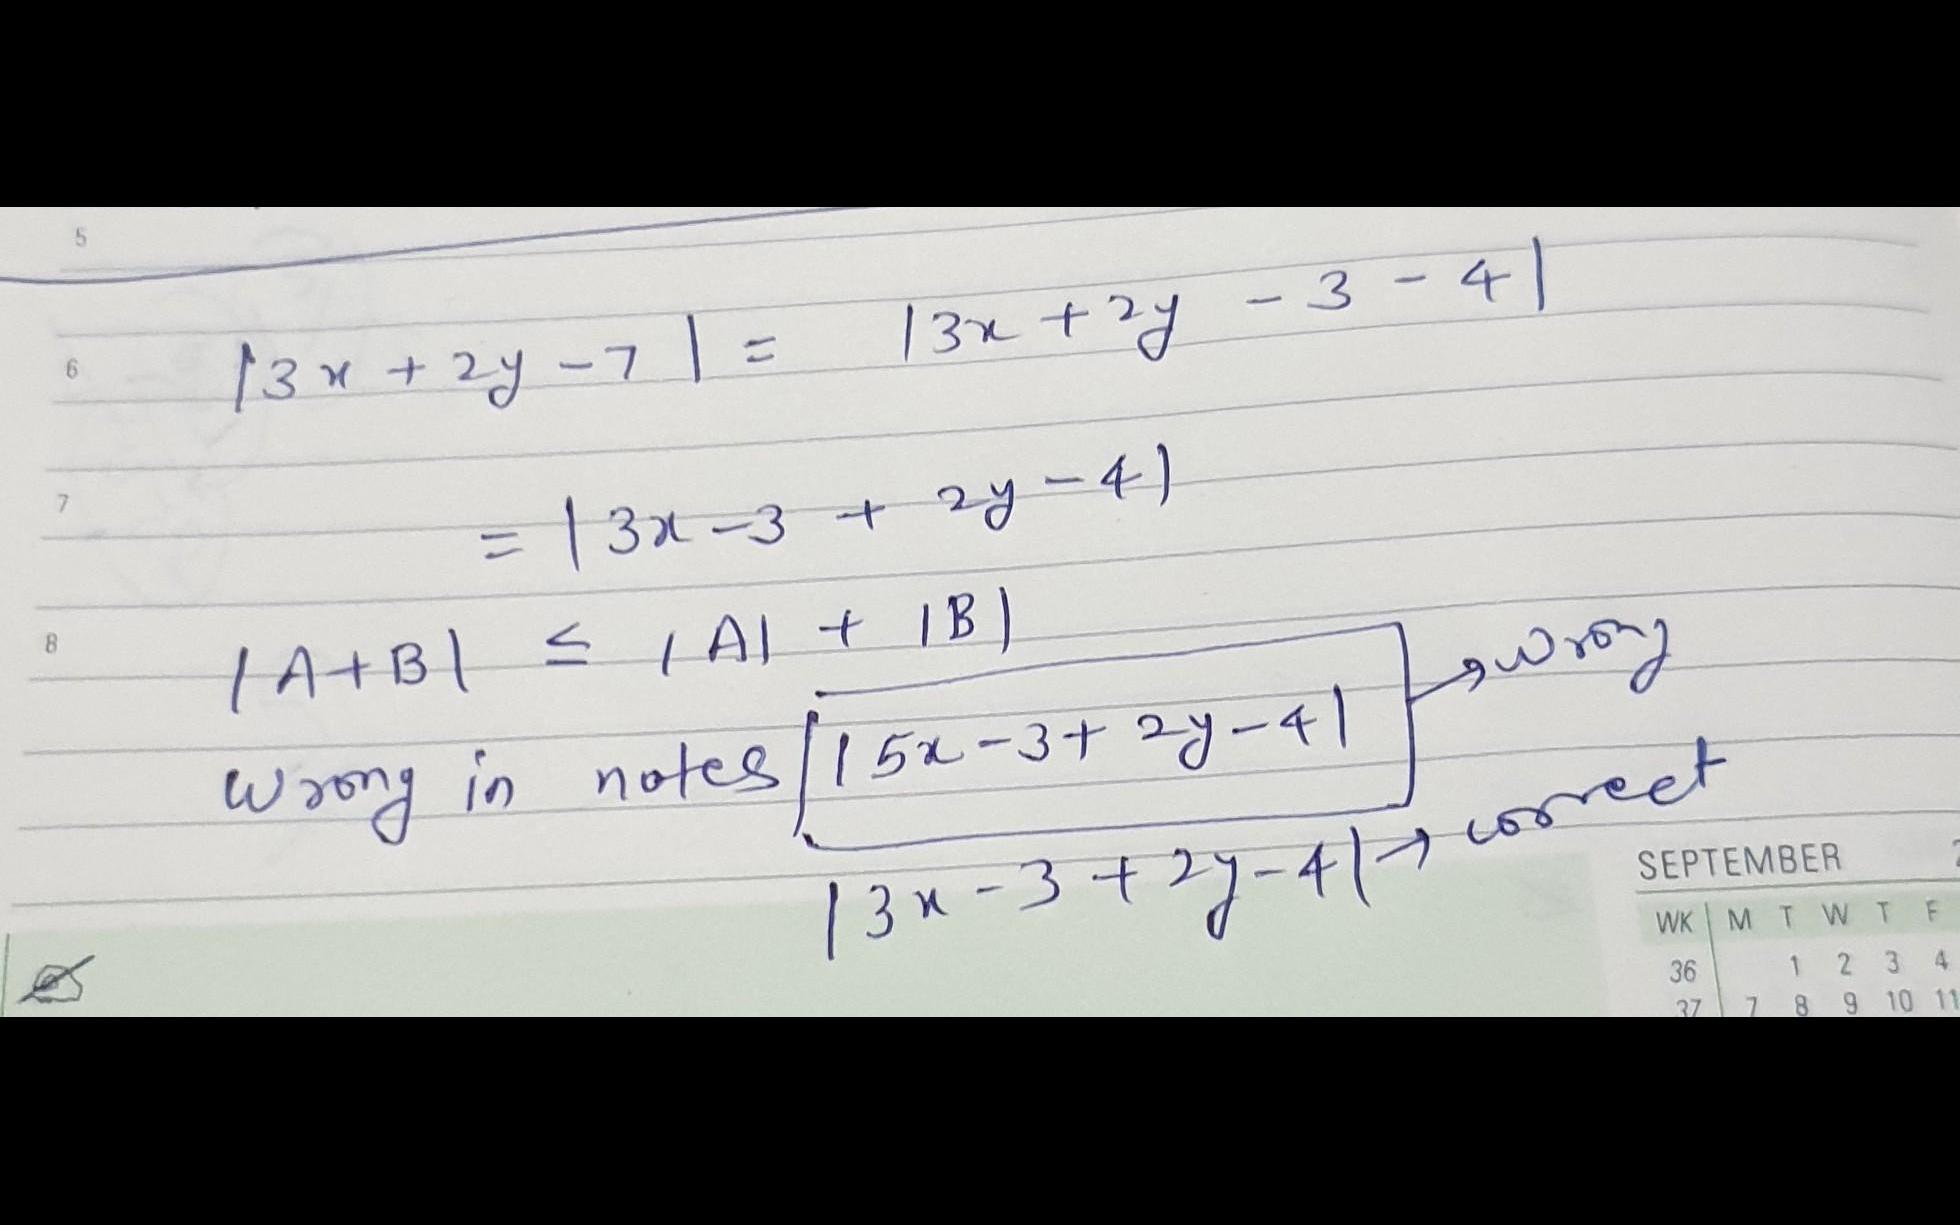 5
6 |3x + 2y - 7| = |3x + 2y - 3 - 4|
7 = |3x - 3 + 2y - 4|
8 |A+B| ≤ |A| + |B|
wrong in notes |5x - 3 + 2y - 4| → wrong
|3x - 3 + 2y - 4| → correct
SEPTEMBER 2
WK M T W T F
36 1 2 3 4
37 7 8 9 10 11